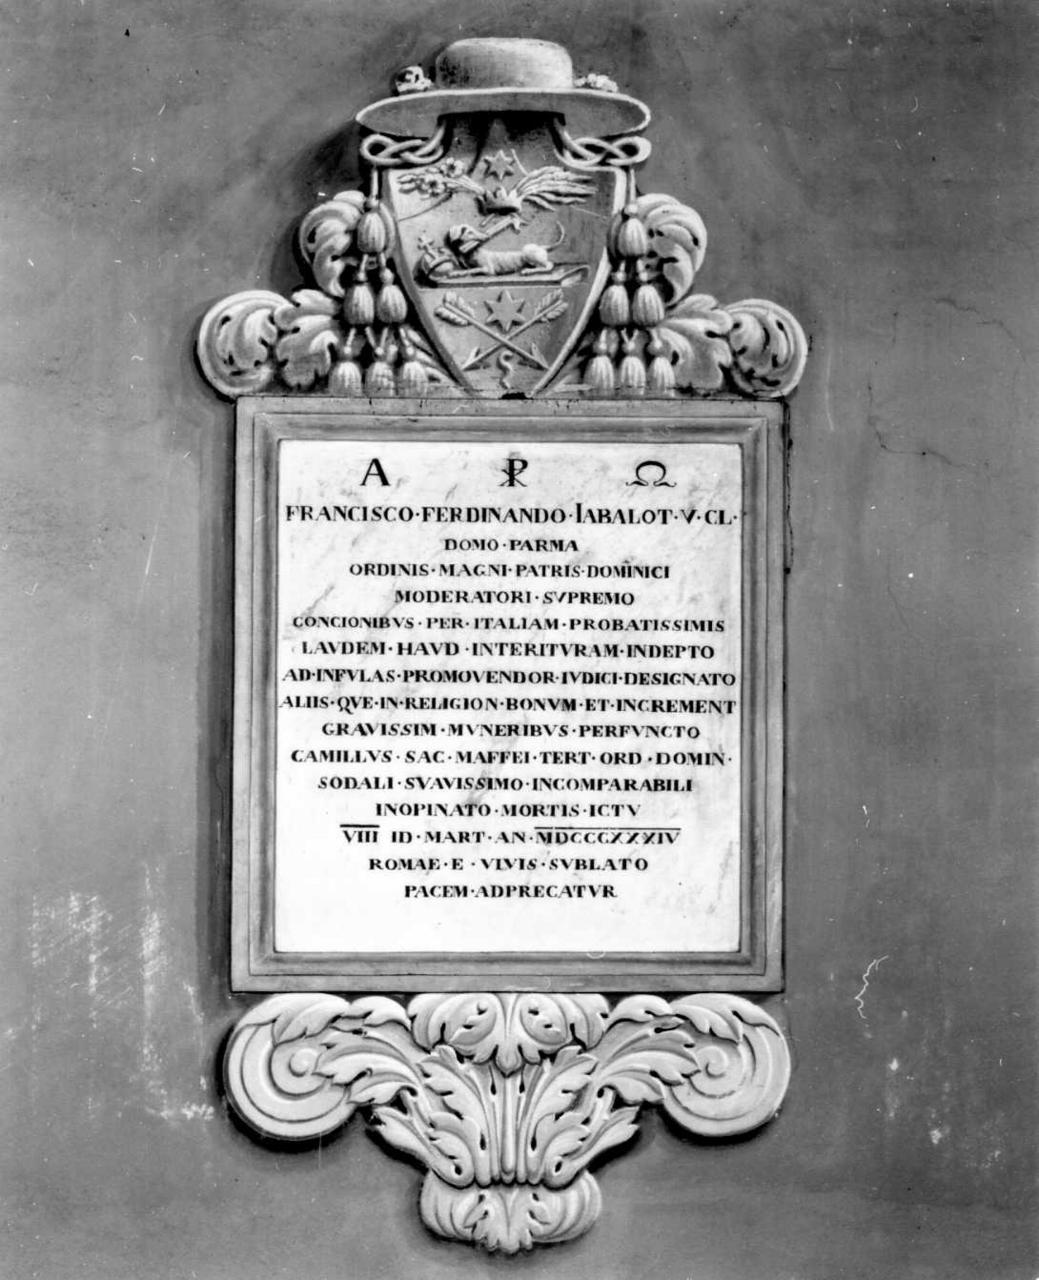 A ☧ Ω
FRANCISCO·FERDINANDO·IABALOT·V·CL·
DOMO·PARMA
ORDINIS·MAGNI·PATRIS·DOMINICI
MODERATORI·SVPREMO
CONCIONIBVS·PER·ITALIAM·PROBATISSIMIS
LAVDEM·HAVD·INTERITVRAM·INDEPTO
AD·INFVLAS·PROMOVENDOR·IVDICI·DESIGNATO
ALIIS·QVE·IN·RELIGION·BONVM·ET·INCREMENT
GRAVISSIM·MVNERIBVS·PERFVNCTO
CAMILLVS·SAC·MAFFEI·TERT·ORD·DOMIN·
SODALI·SVAVISSIMO·INCOMPARABILI
INOPINATO·MORTIS·ICTV
VIII ID·MART·AN·MDCCCXXXIV
ROMAE·E·VIVIS·SVBLATO
PACEM·ADPRECATVR